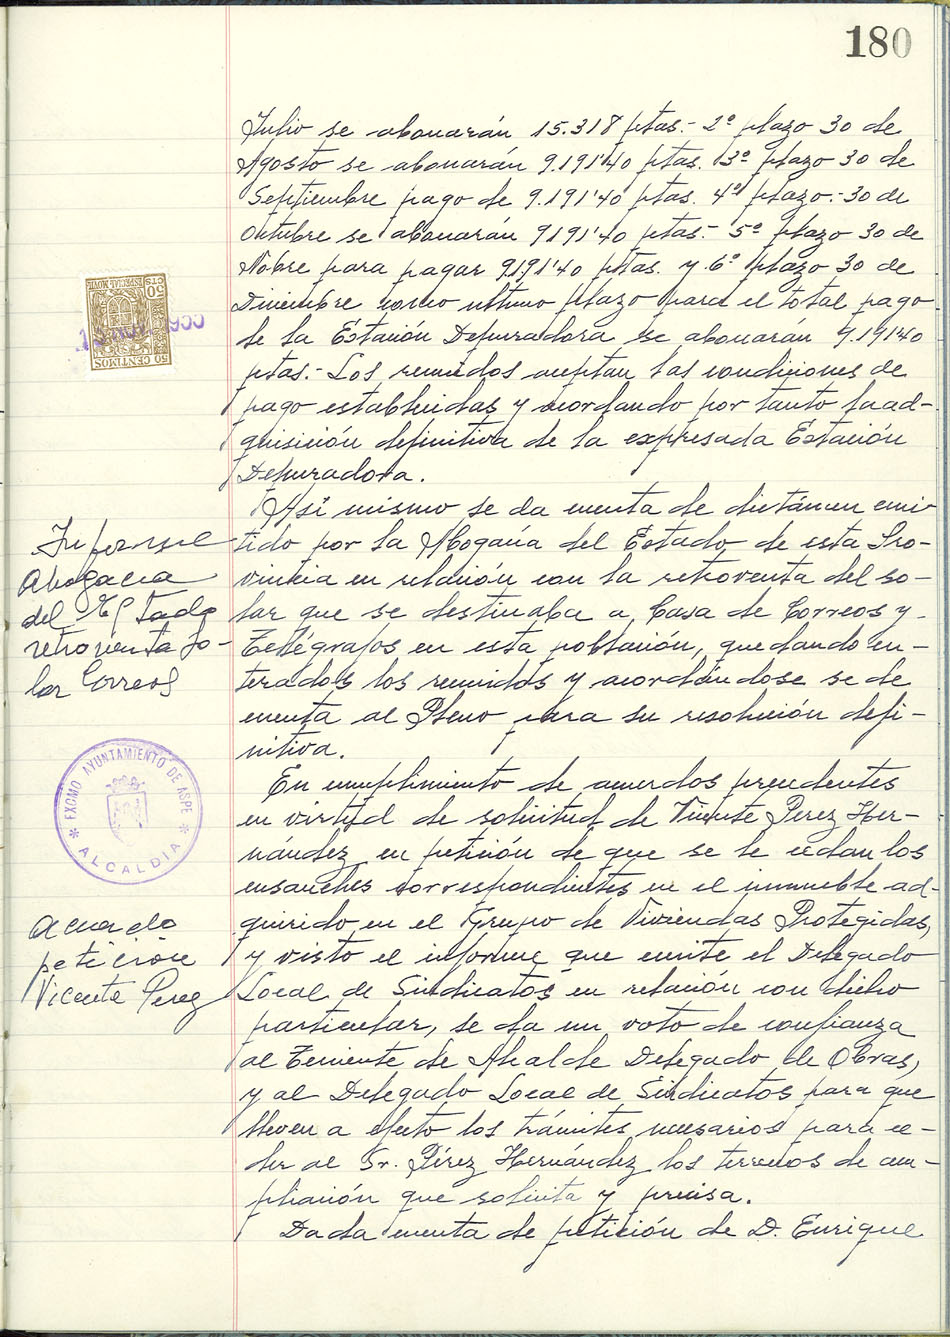 180
Julio se abonarán 15.318 ptas.- 2º plazo 30 de
Agosto se abonarán 9.191'40 ptas. 3º plazo 30 de
Septiembre pago de 9.191'40 ptas. 4º plazo.- 30 de
Octubre se abonarán 9191'40 ptas.- 5º plazo 30 de
Nobre para pagar 9.191'40 ptas. y 6º plazo 30 de
Diciembre como ultimo plazo para el total pago
de la Estación Depuradora se abonarán 9.191'40
ptas.- Los reunidos aceptan las condiciones de
pago establecidas y acordando por tanto la ad-
quisición definitiva de la expresada Estación
Depuradora.
Así mismo se da cuenta de dictámen emi-
tido por la Abogacía del Estado de esta Pro-
vincia en relación con la retroventa del so-
lar que se destinaba a Casa de Correos y
Telégrafos en esta población, quedando en-
terados los reunidos y acordándose se de
cuenta al Pleno para su resolución defi-
nitiva.
En cumplimiento de acuerdos precedentes
en virtud de solicitud de Vicente Perez Her-
nández, en petición de que se le cedan los
ensanches correspondientes en el inmueble ad-
quirido en el Grupo de Viviendas Protegidas,
y visto el informe que emite el Delegado
Local de Sindicatos en relación con dicho
particular, se da un voto de confianza
al Teniente de Alcalde Delegado de Obras,
y al Delegado Local de Sindicatos para que
lleven a efecto los trámites necesarios para ce-
der al Sr. Pérez Hernández los terrenos de am-
pliación que solicita y precisa.
Dada cuenta de petición de D. Enrique
50 CTS ESPECIAL MOVIL
50 CENTIMOS
Informe
Abogacia
del Estado
retroventa so-
lar Correos
EXCMO AYUNTAMIENTO DE ASPE
* ALCALDIA *
Acuerdo
petición
Vicente Perez